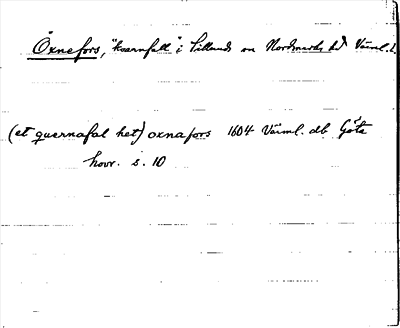 Öxnefors, "kvarnfall" i Sillerud sn Nordmarks hd Värml. l.
(et quernafal het) oxnafors 1604 Värml. db Göta
hovr. s. 10